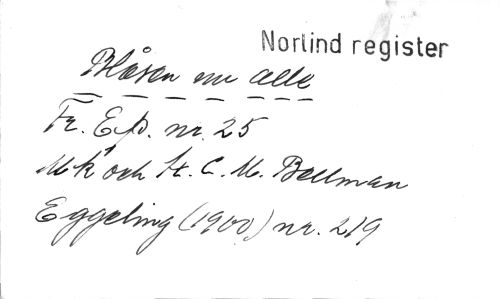 Norlind register
Blåsen nu alla
Fr. Ep. nr. 25
Mk och tt. C. M. Bellman
Eggeling (1900) nr. 219